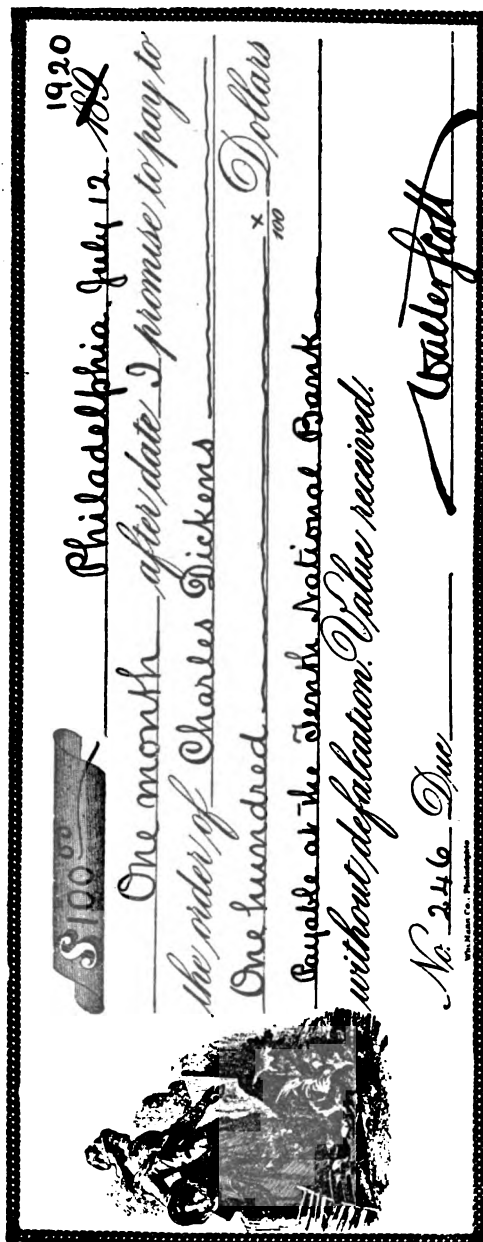 $100 00
Philadelphia, July 12 189 1920
One month after date I promise to pay to
the order of Charles Dickens
One hundred x/100 Dollars
Payable at the Tenth National Bank
without defalcation. Value received.
No. 246 Due Walter Scott
Wm. Mann Co., Philadelphia